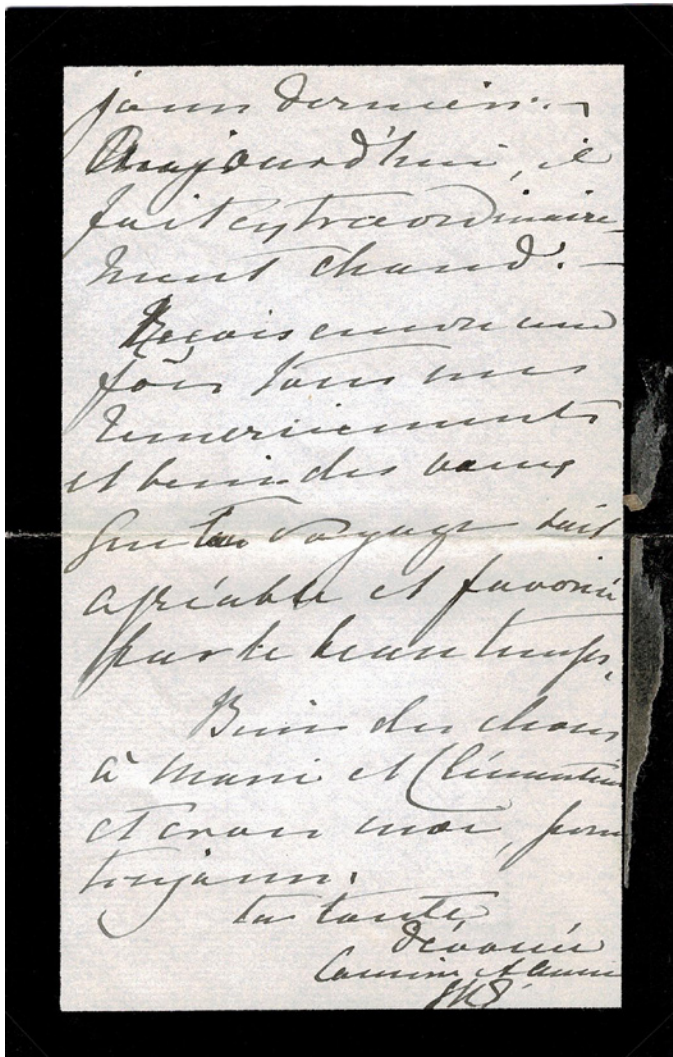 jours derniers. —
Aujourd'hui, il
fait extraordinaire-
ment chaud. —
Reçois encore une
fois tous mes
remerciements
et bien des vœux
que ton voyage soit
agréable et favorisé
par le beau temps.
Bien des choses
à Marie et Clémentine
et crois moi, pour
toujours.
ta toute
dévouée
Cousine et amie